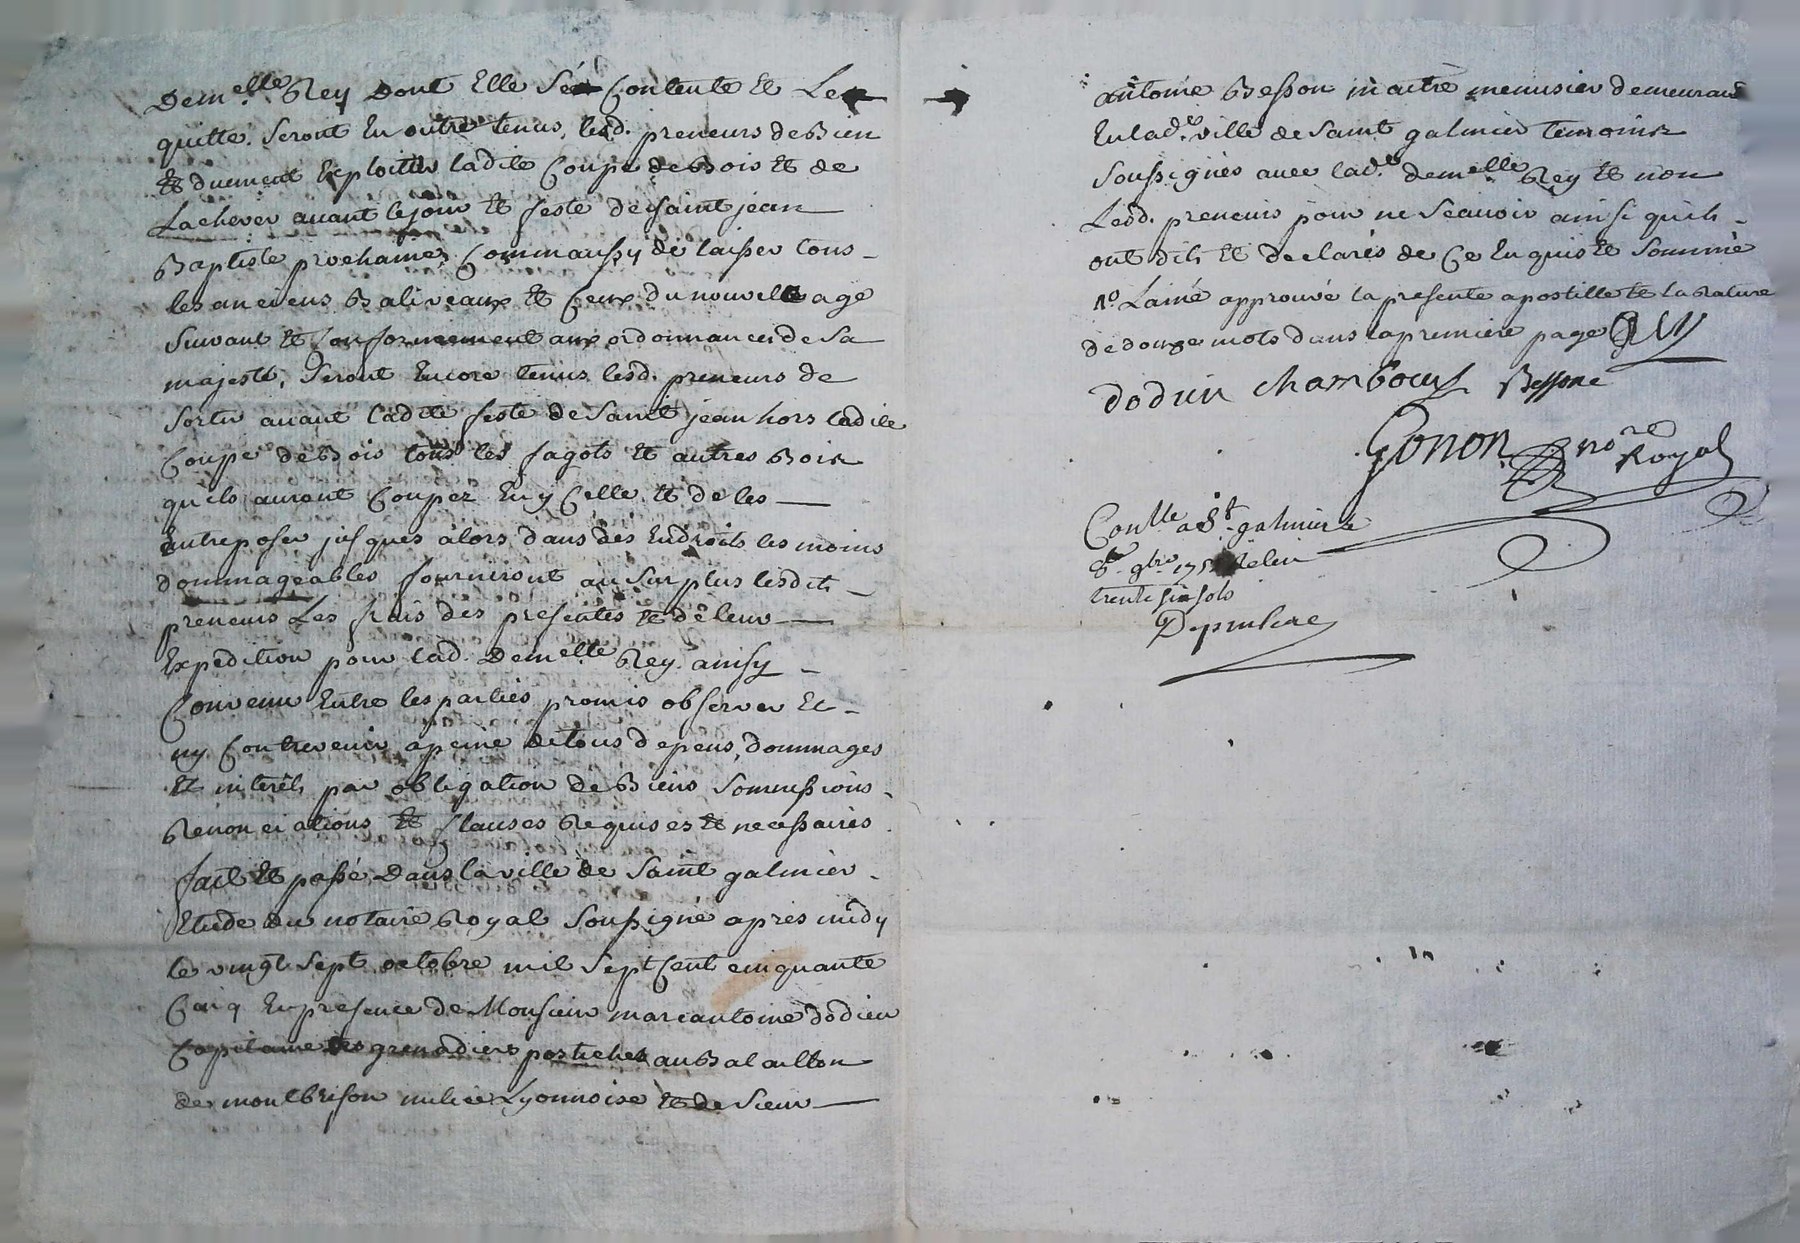 Demelle Rey dont Elle Sé Contente et Les
quitte. Seront En outre tenus, lesd. preneurs de Bien
et duement Exploitter ladite Coupe de Bois et de
Lachever avant le jour et feste de saint jean
Baptiste prochaine, Comm'aussy de laisser tous
les anciens Baliveaux et Ceux du nouvelle age
Suivant et Conformement aux ordonnances de Sa
majesté, Seront Encore tenus lesd. preneurs de
Sortir avant ladite feste de Saint jean hors ladite
Coupe de Bois tous les fagots et autres Bois
quils auront Coupez En y Celle et de les
Entreposer jusques alors dans des Endroits les moins
dommageables fourniront au Surplus lesdits
preneurs Les frais des presentes et de leur
Expedition pour lad. Demelle Rey. ainsy
Convenu Entre les parties promis observer Et
ny Contrevenir apeine de tous depens, dommages
et interêts par obligation de Biens Soumissions
Renonciations et Clauses Requises et necessaires
fait et passé Dans la ville de Saint galmier
Etude du notaire Royal Soussigné après midy
le vingt Sept octobre mil Sept Cent cinquante
Cinq En presence de Monsieur marcantoine dodieu
Capitaine des grenadiers postiches au Bataillon
de montbrison milice Lyonnoise et de Sieur
antoine Besson maitre menusier demeurant
En lad.e ville de Saint galmier temoins
Soussignés avec lad.e demelle Rey et non
Lesd. preneurs pour ne Scavoir ainsi quils
ont dits et declarés de Ce Enquis et Sommé
No. Lainé approuvé la presente apostille et la Rature
de douze mots dans la premiere page
dodieu chamboeuf Besson
Gonon nore Royal
Conlle a St. galmier le
8e. 9bre 175
trente six sols